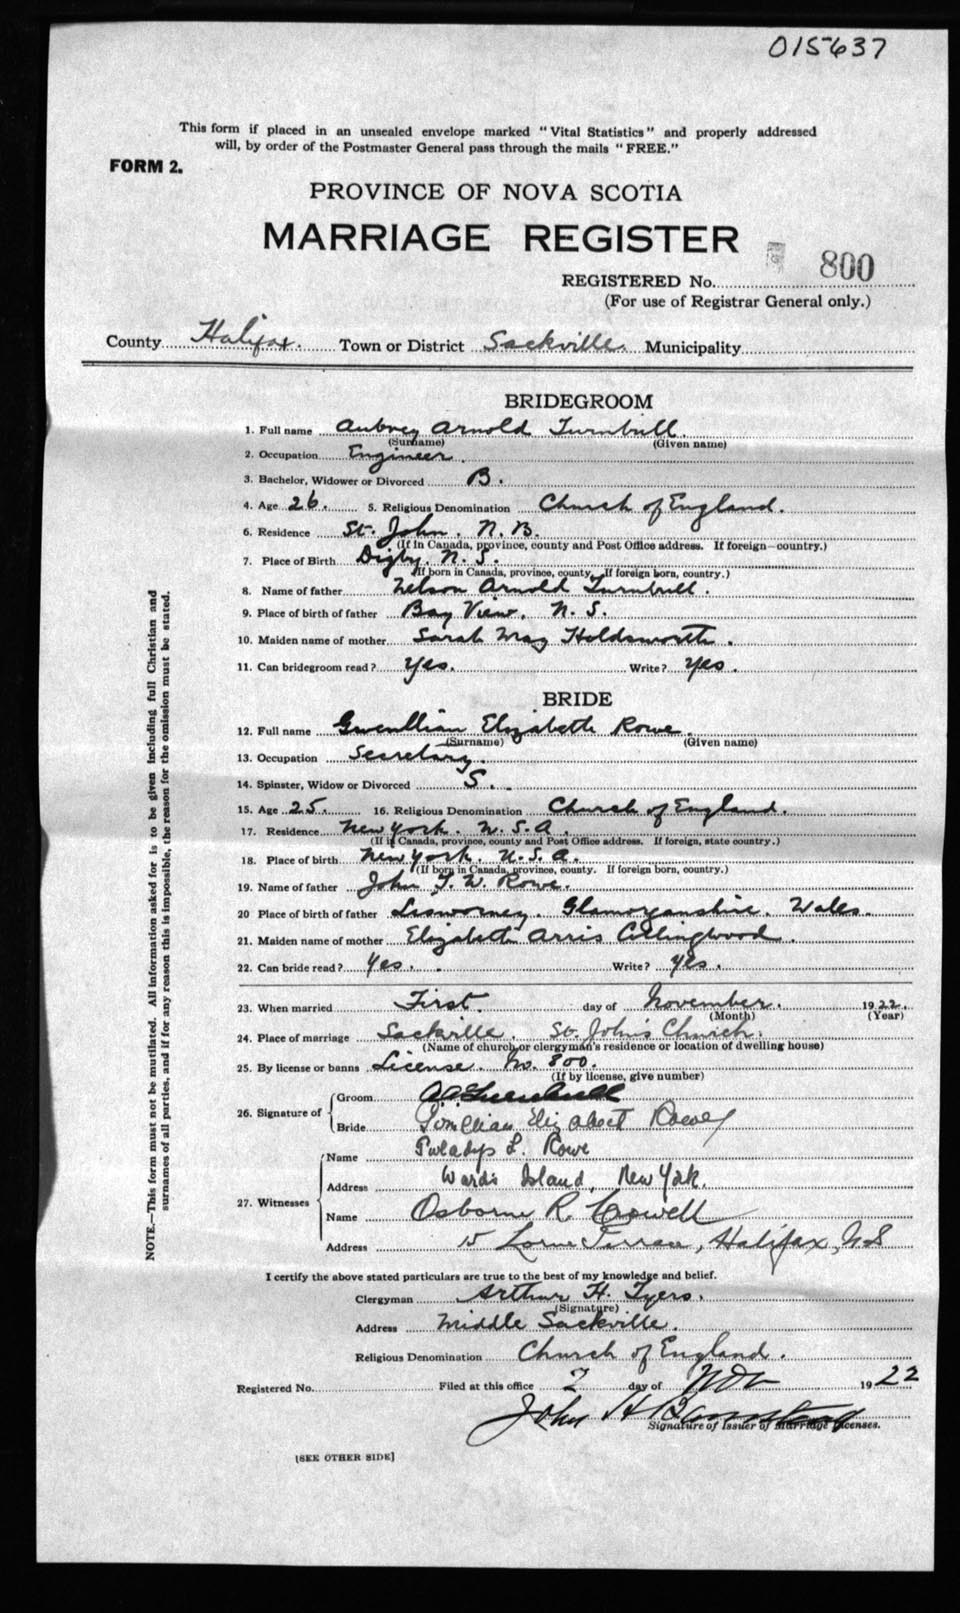 015637
This form if placed in an unsealed envelope marked "Vital Statistics" and properly addressed
will, by order of the Postmaster General pass through the mails "FREE."
FORM 2.
PROVINCE OF NOVA SCOTIA
MARRIAGE REGISTER
REGISTERED No. 800
(For use of Registrar General only.)
County Halifax. Town or District Sackville. Municipality
BRIDEGROOM
1. Full name Aubrey Arnold Turnbull.
(Surname) (Given name)
2. Occupation Engineer.
3. Bachelor, Widower or Divorced B.
4. Age 26. 5. Religious Denomination Church of England.
6. Residence St. John, N. B.
(If in Canada, province, county and Post Office address. If foreign—country.)
7. Place of Birth Digby, N. S.
(If born in Canada, province, county. If foreign born, country.)
8. Name of father Nelson Arnold Turnbull.
9. Place of birth of father Bay View, N. S.
10. Maiden name of mother Sarah May Holdsworth.
11. Can bridegroom read? Yes. Write? Yes.
BRIDE
12. Full name Gwenllian Elizabeth Rowe.
(Surname) (Given name)
13. Occupation Secretary.
14. Spinster, Widow or Divorced S.
15. Age 25. 16. Religious Denomination Church of England.
17. Residence New York. U.S.A.
(If in Canada, province, county and Post Office address. If foreign, state country.)
18. Place of birth New York. U.S.A.
(If born in Canada, province, county. If foreign born, country.)
19. Name of father John T. W. Rowe.
20 Place of birth of father Lisworney. Glamorganshire. Wales.
21. Maiden name of mother Elizabeth Arris Collingwood.
22. Can bride read? Yes. Write? Yes.
23. When married First. day of November. 1922.
(Month) (Year)
24. Place of marriage Sackville. St. John's Church.
(Name of church or clergyman's residence or location of dwelling house)
25. By license or banns License. No. 800.
(If by license, give number)
26. Signature of Groom A A Turnbull
Bride Elizabeth Rowe
27. Witnesses Name Gwladys L. Rowe
Address Wards Island, New York.
Name Osborne R. Crowell
Address 15 Lorne Terrace, Halifax, N.S
I certify the above stated particulars are true to the best of my knowledge and belief.
Clergyman Arthur H. Tyers.
(Signature)
Address Middle Sackville.
Religious Denomination Church of England.
Registered No. Filed at this office 7 day of Nov 1922
John H
Signature of Issuer of Marriage Licenses.
[SEE OTHER SIDE]
NOTE.—This form must not be mutilated. All information asked for is to be given including full Christian and
surnames of all parties, and if for any reason this is impossible, the reason for the omission must be stated.